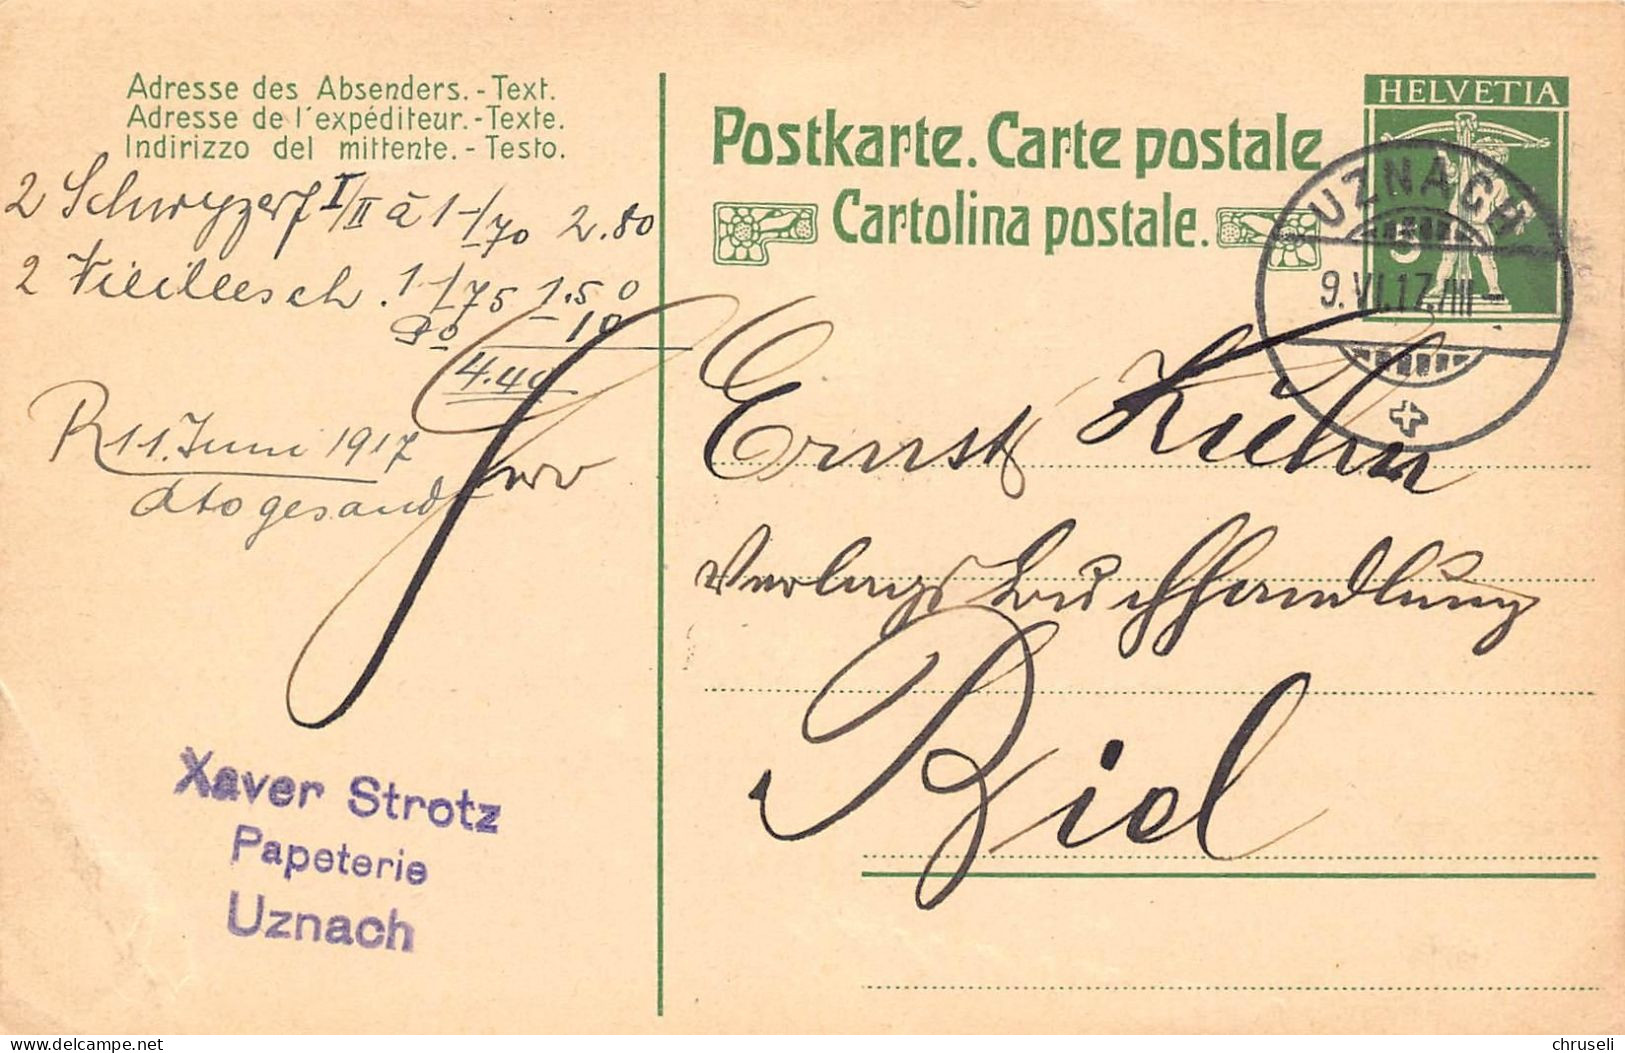 Adresse des Absenders. - Text.
Adresse de l'expéditeur. - Texte.
Indirizzo del mittente. - Testo.
2 Schwyzerf I/II à 1 -/70 2.80
2 . 1 1/75 1.50
90 10
4.40
R 11. Juni 1917
gesandt
Xaver Strotz
Papeterie
Uznach
Postkarte. Carte postale
Cartolina postale.
HELVETIA
5
UZNACH
9.VI.17.III-
Herrn
Ernst Kuhn
Verlagsbuchhandlung
Biel
delcampe.net
chruseli